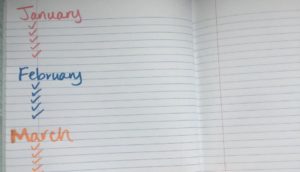 January
✓
✓
✓
✓
✓
February
✓
✓
✓
✓
✓
March
✓
✓
✓
✓